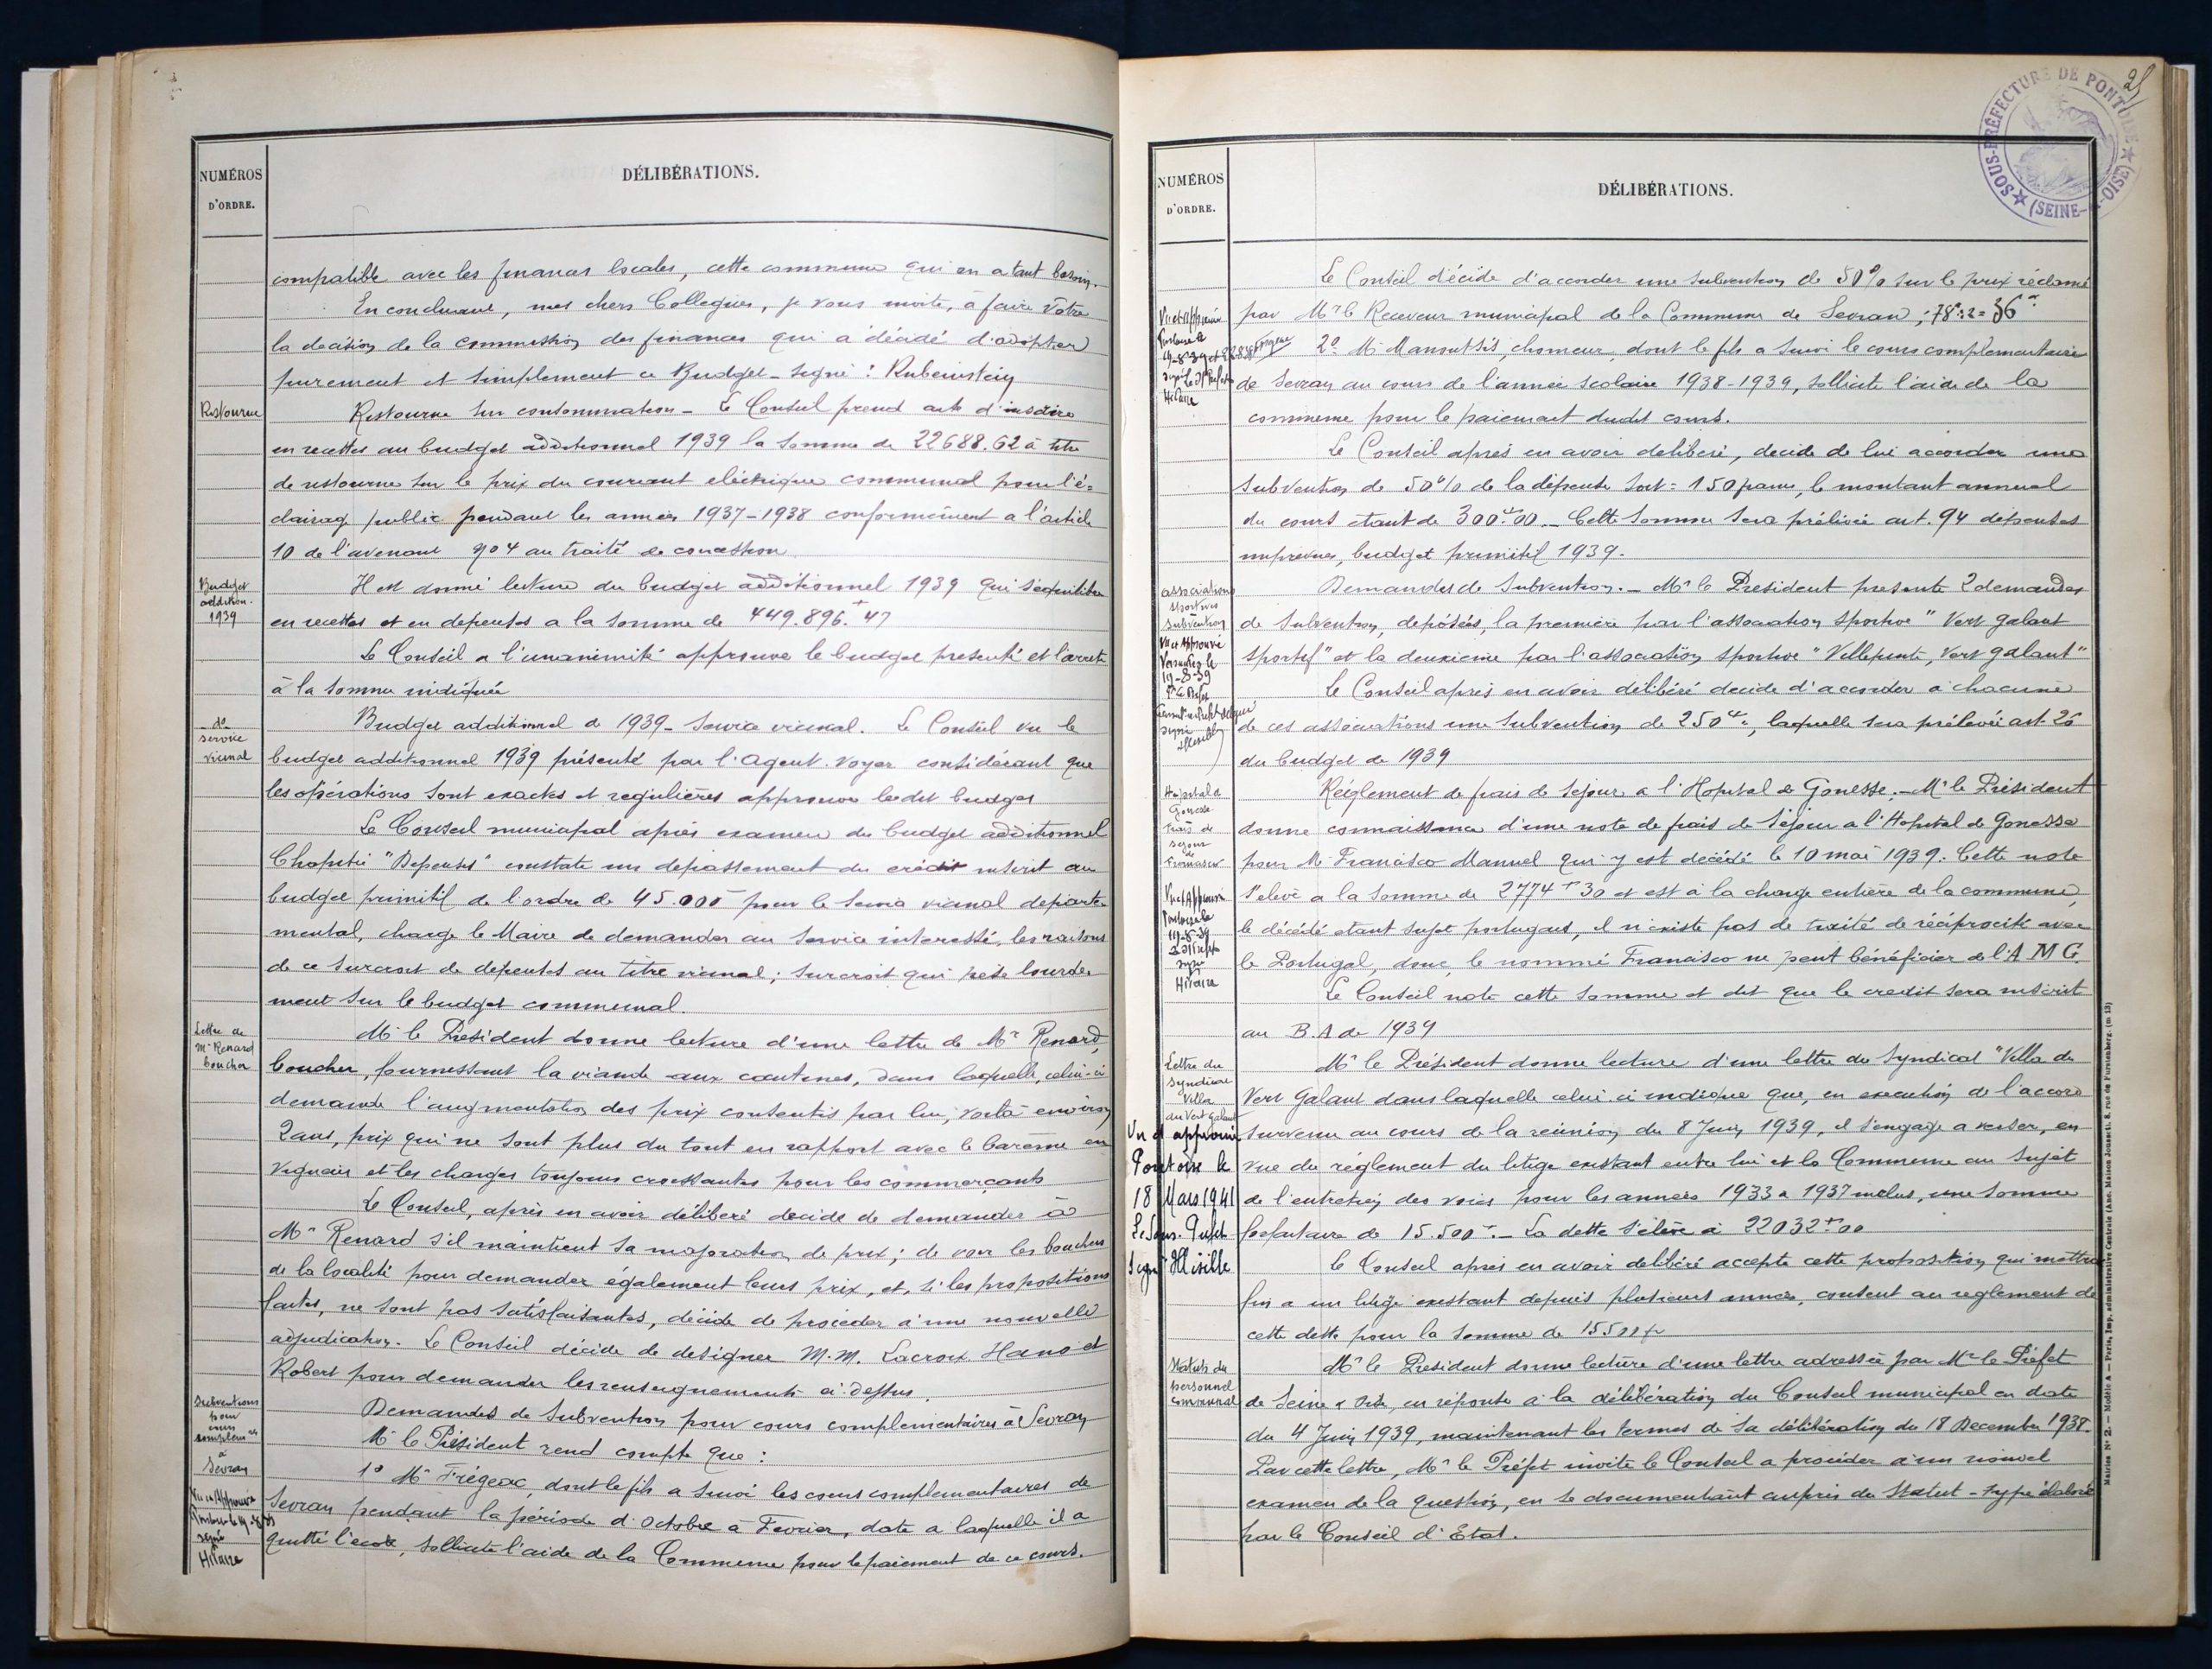 NUMÉROS
D'ORDRE.
DÉLIBÉRATIONS.
compatible avec les finances locales, cette commune qui en a tant besoin.
En concluant, mes chers Collègues, je vous invite, à faire vôtre
la décision de la commission des finances qui a décidé d'adopter
purement et simplement ce Budget - signé : Rubenstein
Ristourne
Ristourne sur consommation - Le Conseil prend acte d'inscrire
en recettes au budget additionnel 1939 la somme de 22688.62 à titre
de ristourne sur le prix du courant électrique communal pour l'é-
clairage public pendant les années 1937-1938 conformément a l'article
10 de l'avenant 904 au traité de concession.
Budget
addition.
1939
Il est donné lecture du budget additionnel 1939 qui s'équilibre
en recettes et en depenses a la somme de 449.896.47
Le Conseil a l'unanimité approuve le budget présenté et l'arrête
à la somme indiquée
do
service
vicinal
Budget additionnel de 1939 - Service vicinal. Le Conseil vu le
budget additionnel 1939 présenté par l'Agent-Voyer considérant que
les opérations sont exactes et regulières approuve ledit budget
Le Conseil municipal après examen du budget additionnel
Chapitre "Depenses" constate un dépassement du crédit inscrit au
budget primitif de l'ordre de 45.000 pour le service vicinal departe-
mental, charge le Maire de demander au service intéressé, les raisons
de ce surcroit de depenses au titre vicinal; surcroit qui pèse lourde-
ment sur le budget communal.
Lettre de
Mr Renard
boucher
Mr le Président donne lecture d'une lettre de Mr Renard,
boucher, fournissant la viande aux cantines, dans laquelle, celui-ci
demande l'augmentation des prix consentis par lui, voilà environ
2 ans, prix qui ne sont plus du tout en rapport avec le barème en
vigueur et les charges toujours croissantes pour les commerçants
Le Conseil, après en avoir délibéré decide de demander à
Mr Renard s'il maintient sa majoration de prix; de voir les bouchers
de la localité pour demander également leurs prix, et, si les propositions
faites, ne sont pas satisfaisantes, décide de procéder à une nouvelle
adjudication. Le Conseil décide de designer M.M. Lacroix. Hano et
Robert pour demander les renseignements ci-dessus.
Subventions
pour
cours
complem res
à
Sevran
Demandes de subvention pour cours complementaires à Sevran
Mr le Président rend compte que :
Vu et Approuvé
Pontoise le 19-8-39
signé
Hilaire
1o Mr Frégeac, dont le fils a suivi les cours complementaires de
Sevran pendant la période d'Octobre à Fevrier, date a laquelle il a
quitté l'école, sollicite l'aide de la Commune pour le paiement de ce cours.
25
SOUS-PRÉFECTURE DE PONTOISE
(SEINE-&-OISE)
NUMÉROS
D'ORDRE.
DÉLIBÉRATIONS.
Le Conseil décide d'accorder une subvention de 50% sur le prix réclamé
par Mr le Receveur municipal de la Commune de Sevran; 78:2=36
Vu et Approuvé
Pontoise le
Hilaire
2o Mr Manoutsis, chomeur, dont le fils a suivi le cours complementaire
de Sevran au cours de l'année scolaire 1938-1939, sollicite l'aide de la
commune pour le paiement dudit cours.
Le Conseil après en avoir deliberé, decide de lui accorder une
subvention de 50% de la dépense soit : 150 francs, le montant annuel
du cours étant de 300.00. - Cette somme sera prélevée art. 94 dépenses
imprévues, budget primitif 1939.
associations
sportives
subvention
Vu et Approuvé
Versailles le
19-8-39
Demandes de Subvention. - Mr le Président presente 2 demandes
de subvention, déposées, la première par l'association sportive "Vert galant
sportif" et la deuxieme par l'association sportive "Villepinte, Vert galant"
Le Conseil après en avoir délibéré decide d'accorder à chacune
de ces associations une subvention de 250, laquelle sera prélevée art. 26
du budget de 1939
Hôpital de
Gonesse
frais de
séjour
de
Francisco
Vu et Approuvé
Pontoise le
19-8-39
signé
Hilaire
Réglement de frais de séjour à l'Hopital de Gonesse. - Mr le Président
donne connaissance d'une note de frais de séjour a l'Hopital de Gonesse
pour Mr Francisco Manuel qui y est décédé le 10 mai 1939. Cette note
s'élève a la somme de 2774 30 et est à la charge entière de la commune,
le décédé étant sujet portugais, il n'existe pas de traité de réciprocité avec
le Portugal, donc le nommé Francisco ne peut bénéficier de l'A M G.
Le Conseil note cette somme et dit que le credit sera inscrit
au B.A de 1939
Lettre du
Syndicat
Villa
du Vert Galant
Vu et approuvé
Pontoise le
18 Mars 1941
Le Sous-Préfet
signé Illisible
Mr le Président donne lecture d'une lettre du Syndicat "Villa du
Vert Galant dans laquelle celui ci indique que, en execution de l'accord
survenu au cours de la réunion du 8 Juin 1939, il s'engage a verser, en
vue du réglement du litige existant entre lui et la Commune au sujet
de l'entretien des voies pour les années 1933 a 1937 inclus, une somme
forfaitaire de 15.500. - La dette s'élève à 22032.00
Le Conseil après en avoir délibéré accepte cette proposition qui mettra
fin a un litige existant depuis plusieurs années, consent au reglement de
cette dette pour la somme de 15500 fr
Statuts du
personnel
communal
Mr le President donne lecture d'une lettre adressée par Mr le Préfet
de Seine & Oise, en réponse à la délibération du Conseil municipal en date
du 4 Juin 1939, maintenant les termes de sa délibération du 18 Decembre 1938.
Par cette lettre, Mr le Préfet invite le Conseil a procéder à un nouvel
examen de la question, en se documentant auprès du Statut-type élaboré
par le Conseil d'Etat.
Matrice No 2. — Modèle A — Paris, Imp. administrative Centrale (Anc. Maison Jousset). 8. rue de Furstenberg. (m 13)